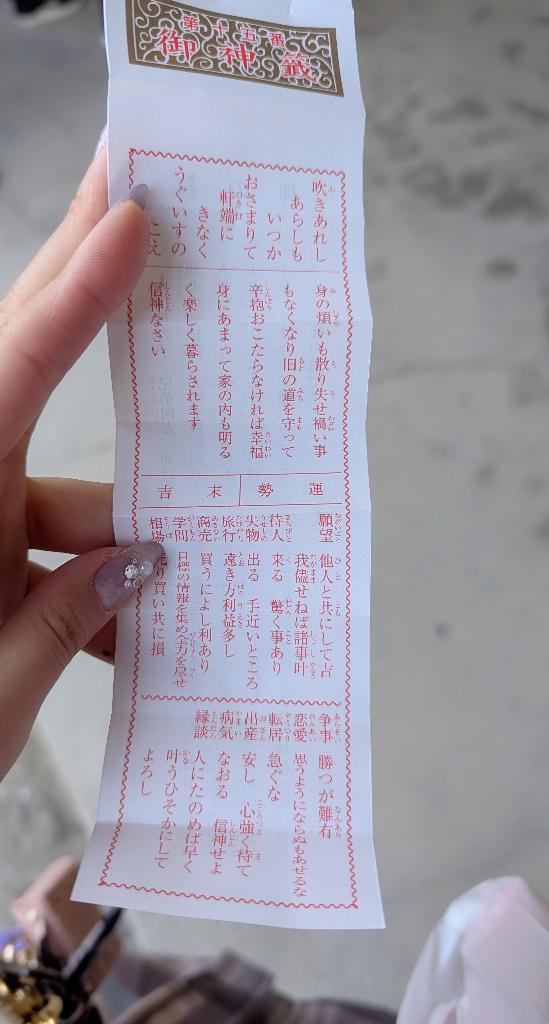 第十五番
御神籤
吹きあれし
あらしも
いつか
おさまりて
軒端に
きなく
うぐいすの
こえ
身の煩いも散り失せ禍い事
もなくなり旧の道を守って
辛抱おこたらなければ幸福
身にあまって家の内も明る
く楽しく暮らされます
信神なさい
運勢 末吉
願望 他人と共にして吉
我儘せねば諸事叶
待人 来る 驚く事あり
失物 出る 手近いところ
旅行 遠き方利益多し
商売 買うによし利あり
学問 目標の情報を集め全力を尽せ
相場 売り買い共に損
争事 勝つが難有
恋愛 思うようにならぬもあせるな
転居 急ぐな
出産 安し 心強く待て
病気 なおる 信神せよ
縁談 人にたのめば早く
叶うひそかにして
よろし